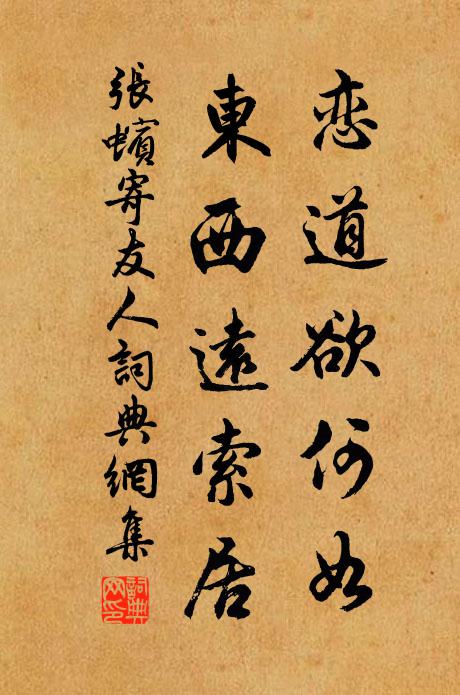 恋道欲何如
東西遠索居
張蠙寄友人詞典網集
詞典
网印